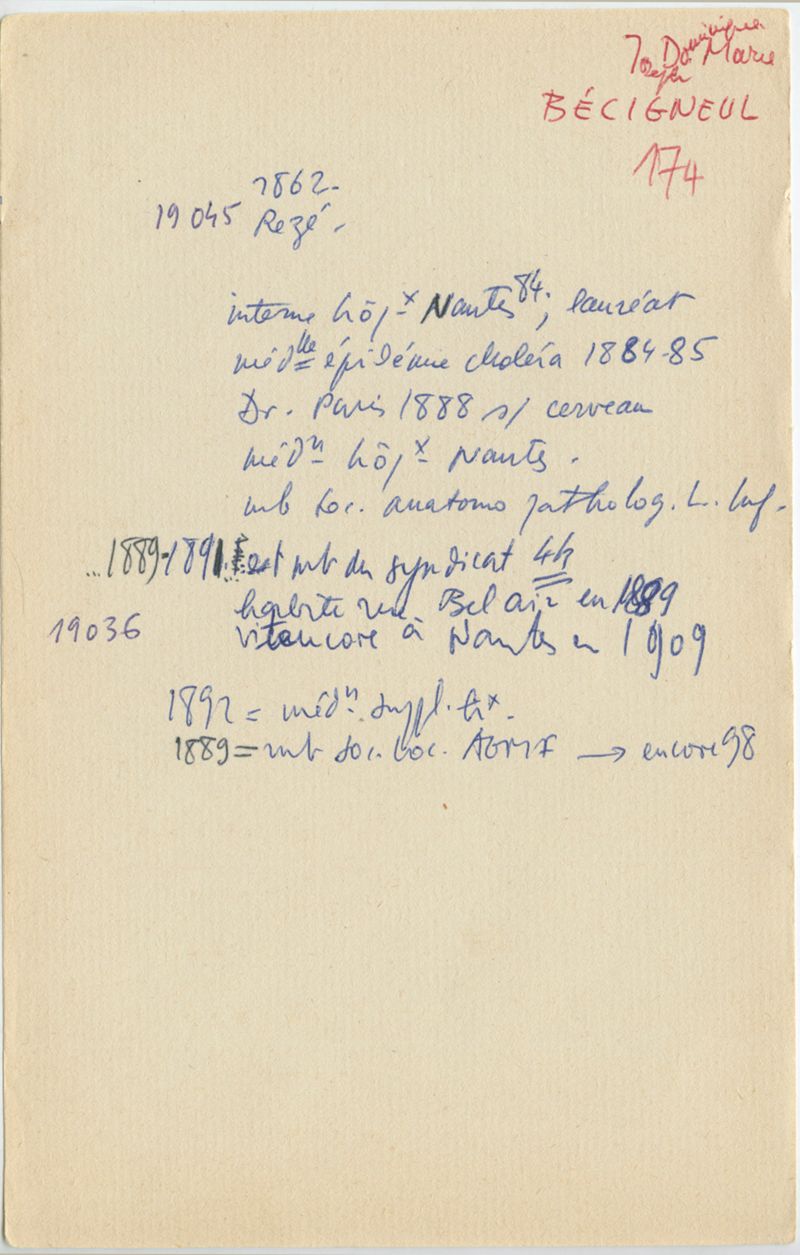 Joseph Dominique Marie
BÉCIGNEUL
174
1862-
19045 Rezé.
interne hôpx Nantes 84; lauréat
médlle épidémie choléra 1884-85
Dr. Paris 1888 s/ cerveau
médn hôpx Nantes.
mb Soc. anatomo patholog. L. Inf.
...1889-1891. est mb du syndicat 44
habite rue Bel air en 1889
19036 vit encore à Nantes en 1909
1892 = médn suppl. hx.
1889 = mb soc. loc. AGMF → encore 98